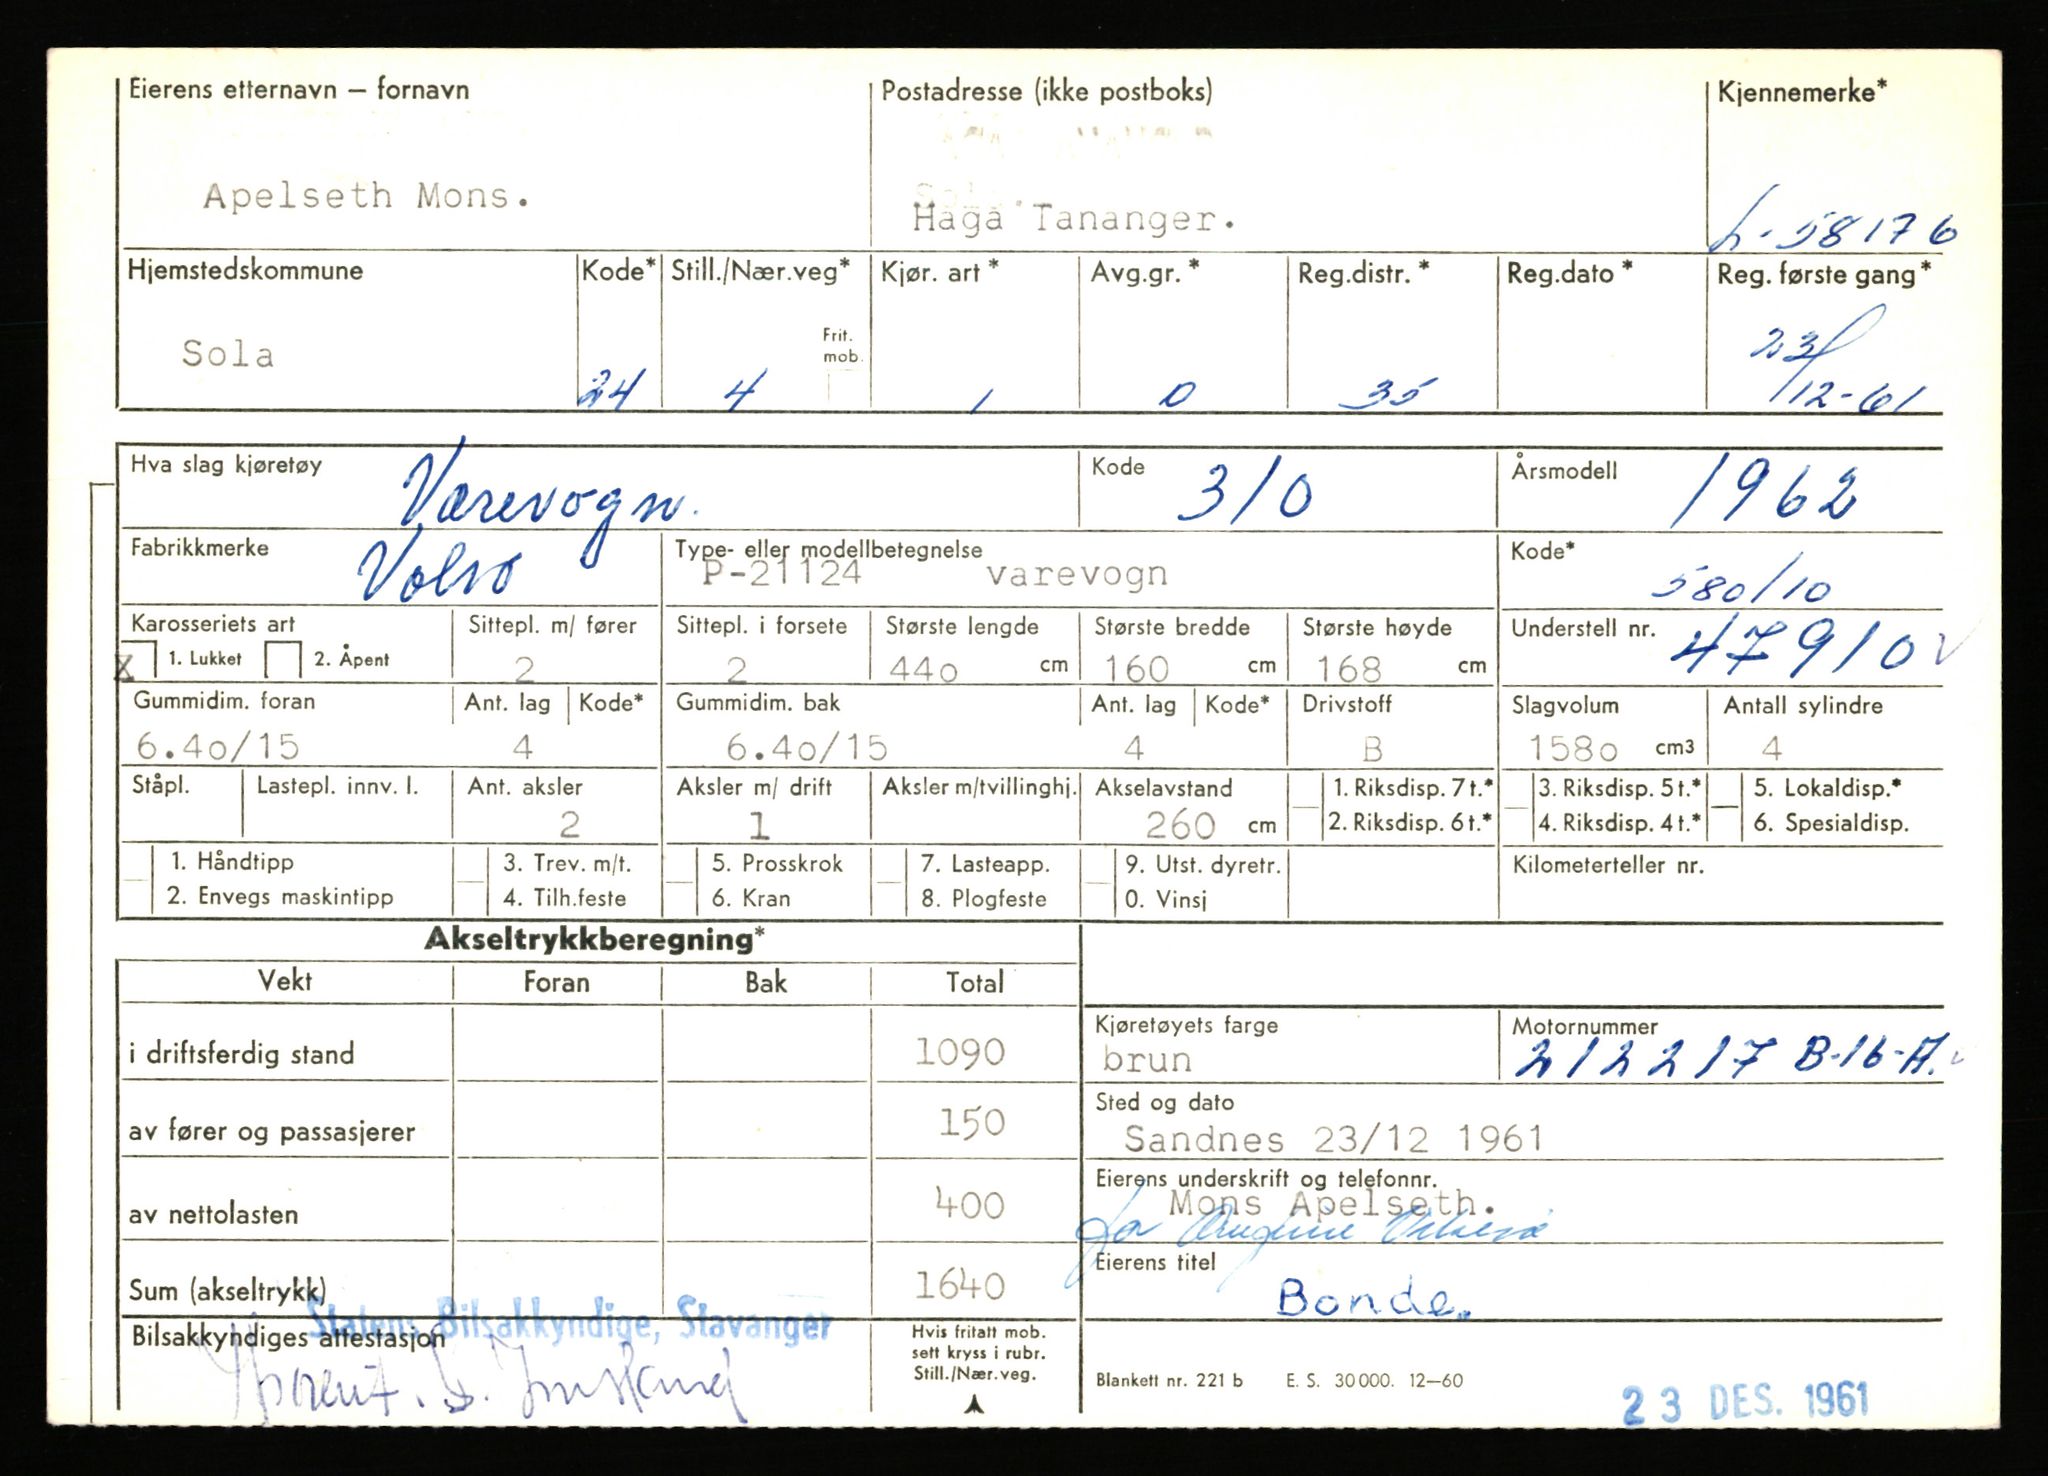 Eierens etternavn — fornavn
Postadresse (ikke postboks)
Kjennemerke*
Apelseth Mons.
Sola.
Haga Tananger.
L-58176
Hjemstedskommune
Kode*
Still./Nær.veg*
Kjør. art *
Avg.gr. *
Reg.distr. *
Reg.dato *
Reg. første gang*
Frit. mob.
Sola
24
4
1
0
35
23/12-61
Hva slag kjøretøy
Varevogn.
Kode
310
Årsmodell
1962
Fabrikkmerke
Volvo
Type- eller modellbetegnelse
P-21124 varevogn
Kode*
580/10
Karosseriets art
Sittepl. m/ fører
Sittepl. i forsete
Største lengde
Største bredde
Største høyde
Understell nr.
47910
X 1. Lukket
2. Åpent
2
2
44o cm
160 cm
168 cm
Gummidim. foran
Ant. lag
Kode*
Gummidim. bak
Ant. lag
Kode*
Drivstoff
Slagvolum
Antall sylindre
6.4o/15
4
6.4o/15
4
B
158o cm3
4
Ståpl.
Lastepl. innv. l.
Ant. aksler
Aksler m/ drift
Aksler m/tvillinghj.
Akselavstand
1. Riksdisp. 7 t.*
3. Riksdisp. 5 t.*
5. Lokaldisp.*
2
1
260 cm
2. Riksdisp. 6 t.*
4. Riksdisp. 4 t.*
6. Spesialdisp.
1. Håndtipp
3. Trev. m/t.
5. Prosskrok
7. Lasteapp.
9. Utst. dyretr.
Kilometerteller nr.
2. Envegs maskintipp
4. Tilh.feste
6. Kran
8. Plogfeste
0. Vinsj
Akseltrykkberegning*
Vekt
Foran
Bak
Total
i driftsferdig stand
1090
Kjøretøyets farge
brun
Motornummer
212217 B-16-A.
av fører og passasjerer
150
Sted og dato
Sandnes 23/12 1961
av nettolasten
400
Eierens underskrift og telefonnr.
Mons Apelseth.
for
Sum (akseltrykk)
1640
Eierens titel
Bonde.
Statens Bilsakkyndige, Stavanger
Bilsakkyndiges attestasjon
Hvis fritatt mob.
sett kryss i rubr.
Still./Nær.veg.
Blankett nr. 221 b E. S. 30 000. 12—60
23 DES. 1961